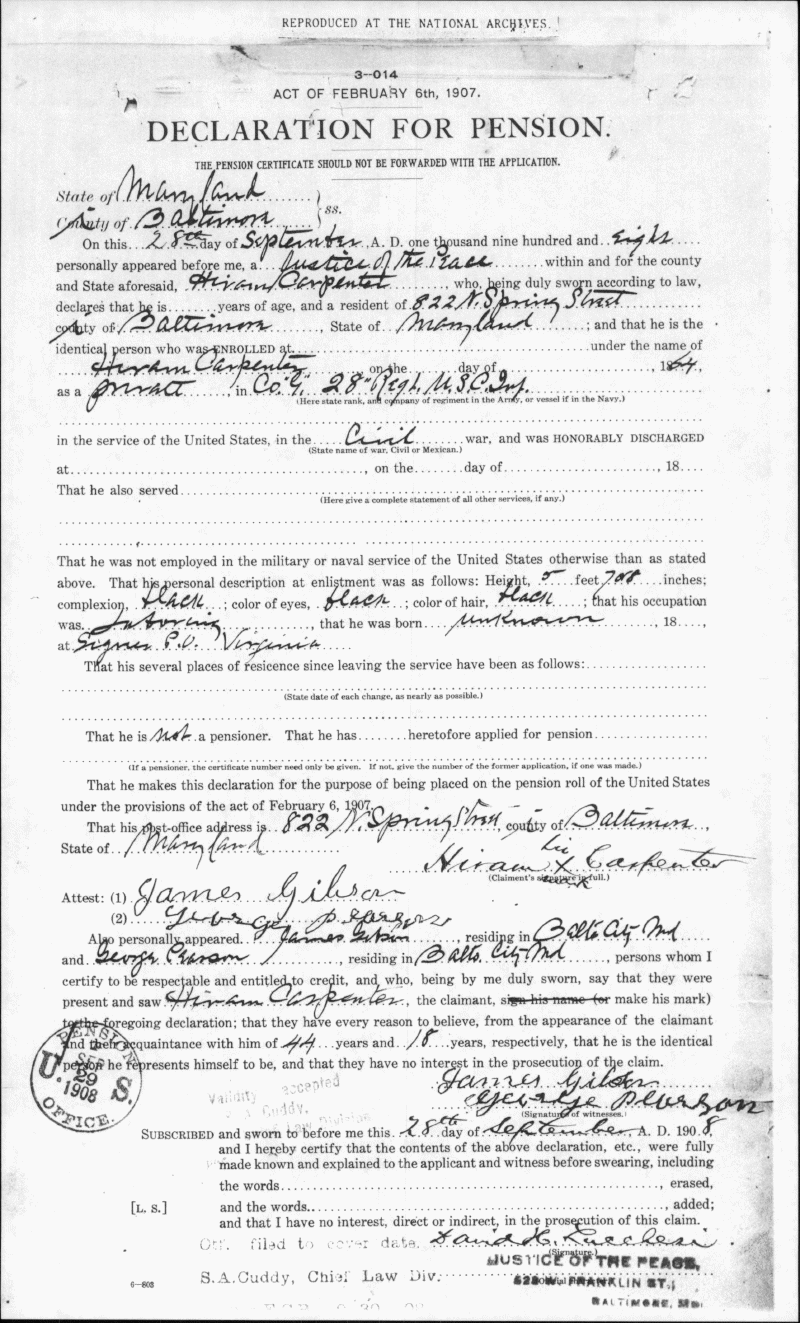 REPRODUCED AT THE NATIONAL ARCHIVES.
3--014
ACT OF FEBRUARY 6th, 1907.
DECLARATION FOR PENSION.
THE PENSION CERTIFICATE SHOULD NOT BE FORWARDED WITH THE APPLICATION.
State of Maryland
County of Baltimore } ss.
On this 28th day of September, A. D. one thousand nine hundred and eight
personally appeared before me, a Justice of the Peace within and for the county
and State aforesaid, Hiram Carpenter, who, being duly sworn according to law,
declares that he is years of age, and a resident of 822 N. Spring Street
county of Baltimore, State of Maryland; and that he is the
identical person who was ENROLLED at under the name of
Hiram Carpenter on the day of, 1864,
as a private, in Co. "G" 28" Regt. U.S.C. Inf.
(Here state rank, and company of regiment in the Army, or vessel if in the Navy.)
in the service of the United States, in the Civil war, and was HONORABLY DISCHARGED
(State name of war, Civil or Mexican.)
at, on the day of, 18
That he also served
(Here give a complete statement of all other services, if any.)
That he was not employed in the military or naval service of the United States otherwise than as stated
above. That his personal description at enlistment was as follows: Height, 5 feet 7 or 8 inches;
complexion, black; color of eyes, black; color of hair, black; that his occupation
was, that he was born unknown, 18,
at P.O. Virginia
That his several places of resicence since leaving the service have been as follows:
(State date of each change, as nearly as possible.)
That he is not a pensioner. That he has heretofore applied for pension
(If a pensioner, the certificate number need only be given. If not, give the number of the former application, if one was made.)
That he makes this declaration for the purpose of being placed on the pension roll of the United States
under the provisions of the act of February 6, 1907.
That his post-office address is 822 N. Spring Street, county of Baltimore,
State of Maryland
his
Hiram X Carpenter
(Claiment's signature in full.)
mark
Attest: (1) James Gibson
(2) George Pearson
Also personally appeared James Gibson, residing in Balto City Md
and George Pearson, residing in Balto. City Md, persons whom I
certify to be respectable and entitled to credit, and who, being by me duly sworn, say that they were
present and saw Hiram Carpenter, the claimant, sign his name (or make his mark)
to the foregoing declaration; that they have every reason to believe, from the appearance of the claimant
and their acquaintance with him of 44 years and 18 years, respectively, that he is the identical
person he represents himself to be, and that they have no interest in the prosecution of the claim.
U. S. PENSION OFFICE.
SEP 29 1908
James Gibson
George Pearson
(Signature of witnesses.)
Validity accepted
Cuddy,
Law Division
SUBSCRIBED and sworn to before me this 28th day of September, A. D. 1908,
and I hereby certify that the contents of the above declaration, etc., were fully
made known and explained to the applicant and witness before swearing, including
the words, erased,
[L. S.] and the words, added;
and that I have no interest, direct or indirect, in the prosecution of this claim.
filed to cover date. David H. Lucchesi
(Signature.)
JUSTICE OF THE PEACE,
S.A.Cuddy, Chief Law Div.
FRANKLIN ST.,
BALTIMORE, Md.
6--803